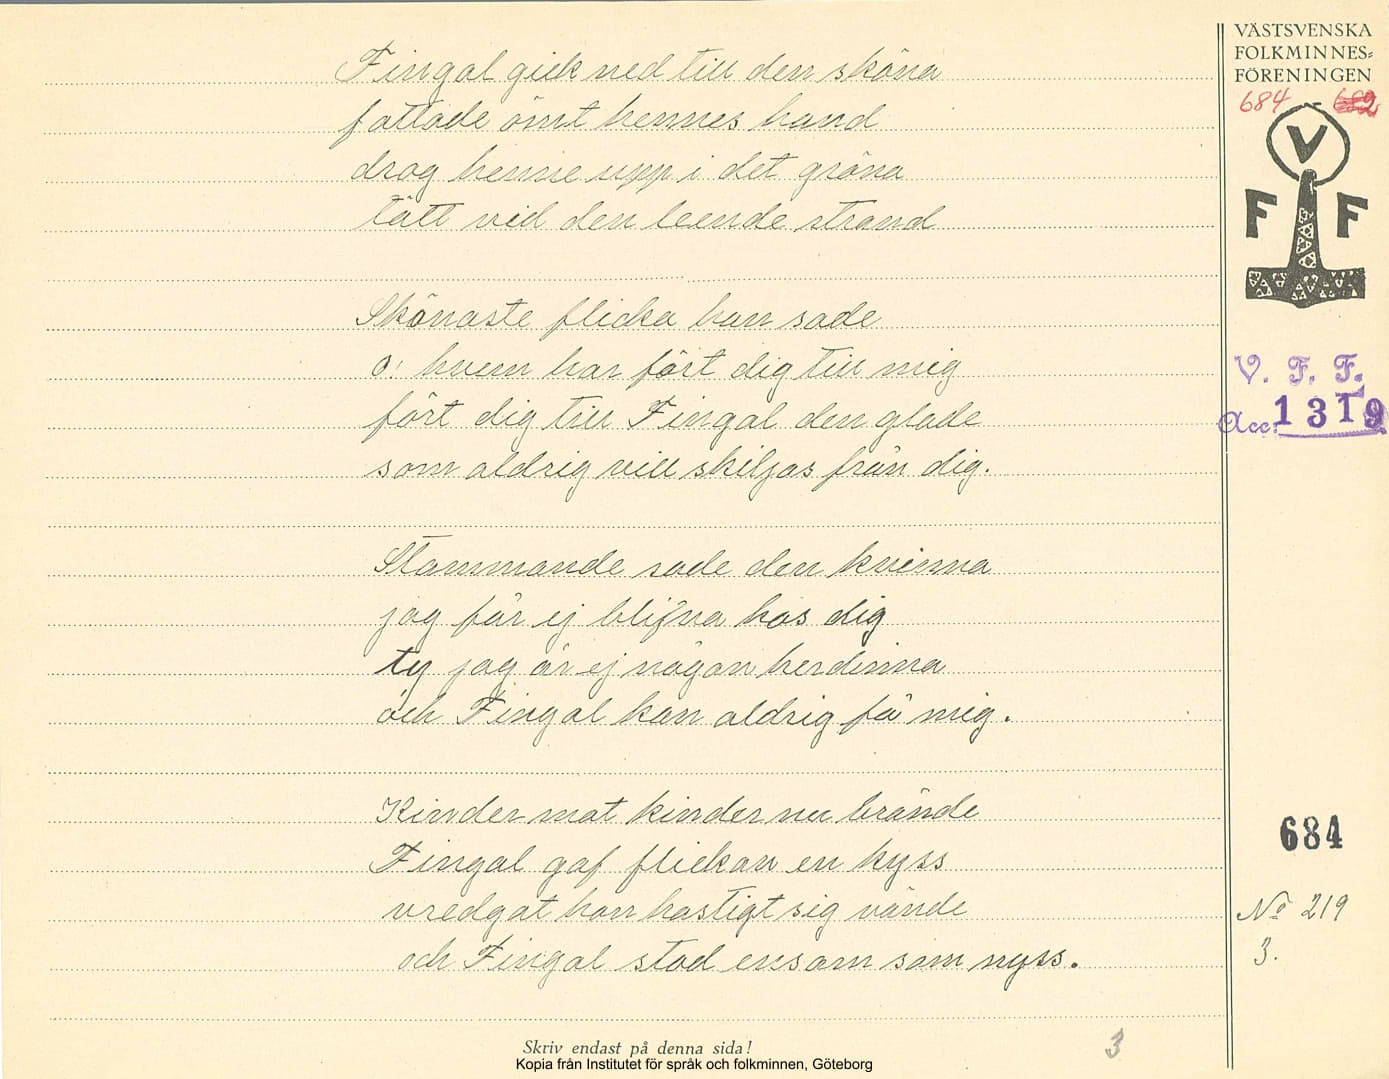 Fingal gick ned till den sköna
fattade ömt hennes hand
drog henne upp i det gröna
tätt vid den leende strand
Skönaste flicka han sade
o! hvem har fört dig till mig
fört dig till Fingal den glade
som aldrig vill skiljas från dig.
Stammande sade den kvinna
jag får ej blifva hos dig
ty jag är ej någon herdinna
och Fingal kan aldrig få mig.
Kinder mot kinder nu brände
Fingal gaf flickan en kyss
vredgat hon hastigt sig vände
och Fingal stod ensam som nyss.
Skriv endast på denna sida!
3
Kopia från Institutet för språk och folkminnen, Göteborg
VÄSTSVENSKA
FOLKMINNES-
FÖRENINGEN
684 - 682
V
F F
V. F. F.
Acc. 1319
684
No 219
3.